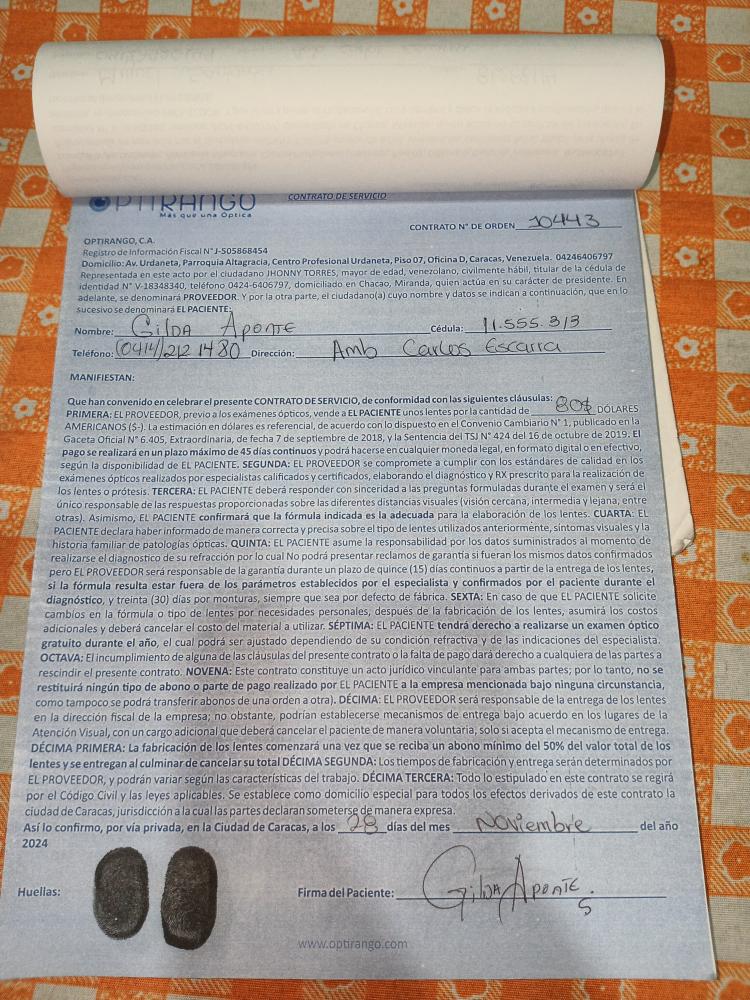 OPTIRANGO
Más que una Óptica
CONTRATO DE SERVICIO
CONTRATO N° DE ORDEN 10443
OPTIRANGO, C.A.
Registro de Información Fiscal N° J-505868454
Domicilio: Av. Urdaneta, Parroquia Altagracia, Centro Profesional Urdaneta, Piso 07, Oficina D, Caracas, Venezuela. 04246406797
Representada en este acto por el ciudadano JHONNY TORRES, mayor de edad, venezolano, civilmente hábil, titular de la cédula de
identidad N° V-18348340, teléfono 0424-6406797, domiciliado en Chacao, Miranda, quien actúa en su carácter de presidente. En
adelante, se denominará PROVEEDOR. Y por la otra parte, el ciudadano(a) cuyo nombre y datos se indican a continuación, que en lo
sucesivo se denominará EL PACIENTE:
Nombre: Gilda Aponte Cédula: 11.555.313
Teléfono: (0414) 212 1480 Dirección: Amb Carlos Escarra
MANIFIESTAN:
Que han convenido en celebrar el presente CONTRATO DE SERVICIO, de conformidad con las siguientes cláusulas:
PRIMERA: EL PROVEEDOR, previo a los exámenes ópticos, vende a EL PACIENTE unos lentes por la cantidad de 80$ DÓLARES
AMERICANOS ($-). La estimación en dólares es referencial, de acuerdo con lo dispuesto en el Convenio Cambiario N° 1, publicado en la
Gaceta Oficial N° 6.405, Extraordinaria, de fecha 7 de septiembre de 2018, y la Sentencia del TSJ N° 424 del 16 de octubre de 2019. El
pago se realizará en un plazo máximo de 45 días continuos y podrá hacerse en cualquier moneda legal, en formato digital o en efectivo,
según la disponibilidad de EL PACIENTE. SEGUNDA: EL PROVEEDOR se compromete a cumplir con los estándares de calidad en los
exámenes ópticos realizados por especialistas calificados y certificados, elaborando el diagnóstico y RX prescrito para la realización de
los lentes o prótesis. TERCERA: EL PACIENTE deberá responder con sinceridad a las preguntas formuladas durante el examen y será el
único responsable de las respuestas proporcionadas sobre las diferentes distancias visuales (visión cercana, intermedia y lejana, entre
otras). Asimismo, EL PACIENTE confirmará que la fórmula indicada es la adecuada para la elaboración de los lentes. CUARTA: EL
PACIENTE declara haber informado de manera correcta y precisa sobre el tipo de lentes utilizados anteriormente, síntomas visuales y la
historia familiar de patologías ópticas. QUINTA: EL PACIENTE asume la responsabilidad por los datos suministrados al momento de
realizarse el diagnostico de su refracción por lo cual No podrá presentar reclamos de garantía si fueran los mismos datos confirmados
pero EL PROVEEDOR será responsable de la garantía durante un plazo de quince (15) días continuos a partir de la entrega de los lentes,
si la fórmula resulta estar fuera de los parámetros establecidos por el especialista y confirmados por el paciente durante el
diagnóstico, y treinta (30) días por monturas, siempre que sea por defecto de fábrica. SEXTA: En caso de que EL PACIENTE solicite
cambios en la fórmula o tipo de lentes por necesidades personales, después de la fabricación de los lentes, asumirá los costos
adicionales y deberá cancelar el costo del material a utilizar. SÉPTIMA: EL PACIENTE tendrá derecho a realizarse un examen óptico
gratuito durante el año, el cual podrá ser ajustado dependiendo de su condición refractiva y de las indicaciones del especialista.
OCTAVA: El incumplimiento de alguna de las cláusulas del presente contrato o la falta de pago dará derecho a cualquiera de las partes a
rescindir el presente contrato. NOVENA: Este contrato constituye un acto jurídico vinculante para ambas partes; por lo tanto, no se
restituirá ningún tipo de abono o parte de pago realizado por EL PACIENTE a la empresa mencionada bajo ninguna circunstancia,
como tampoco se podrá transferir abonos de una orden a otra). DÉCIMA: EL PROVEEDOR será responsable de la entrega de los lentes
en la dirección fiscal de la empresa; no obstante, podrían establecerse mecanismos de entrega bajo acuerdo en los lugares de la
Atención Visual, con un cargo adicional que deberá cancelar el paciente de manera voluntaria, solo si acepta el mecanismo de entrega.
DÉCIMA PRIMERA: La fabricación de los lentes comenzará una vez que se reciba un abono mínimo del 50% del valor total de los
lentes y se entregan al culminar de cancelar su total DÉCIMA SEGUNDA: Los tiempos de fabricación y entrega serán determinados por
EL PROVEEDOR, y podrán variar según las características del trabajo. DÉCIMA TERCERA: Todo lo estipulado en este contrato se regirá
por el Código Civil y las leyes aplicables. Se establece como domicilio especial para todos los efectos derivados de este contrato la
ciudad de Caracas, jurisdicción a la cual las partes declaran someterse de manera expresa.
Así lo confirmo, por vía privada, en la Ciudad de Caracas, a los 28 días del mes Noviembre del año
2024
Huellas: Firma del Paciente: Gilda Aponte S
www.optirango.com